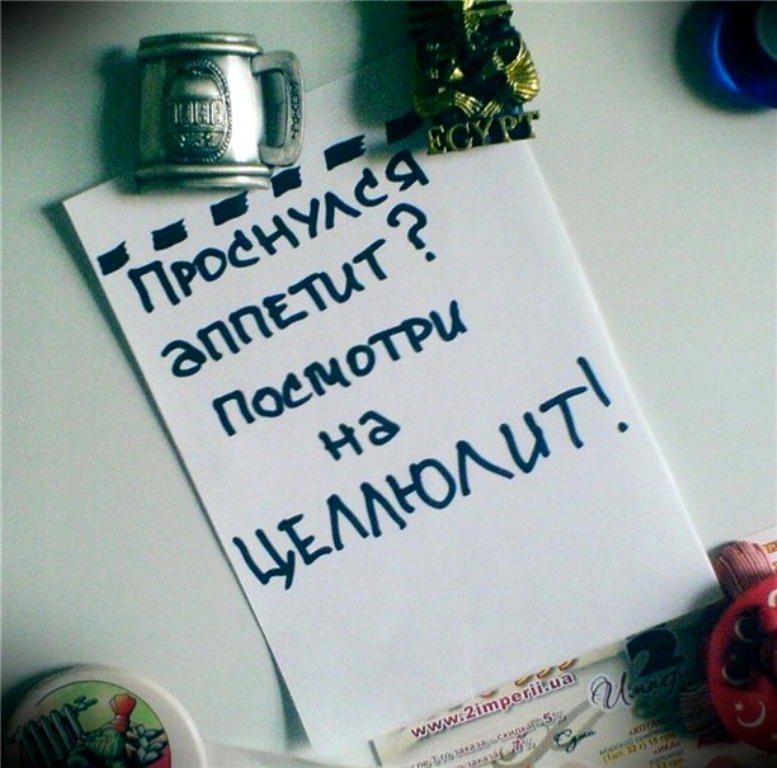 EGYPT
Проснулся
аппетит?
посмотри
на
ЦЕЛЛЮЛИТ!
www.2imperii.ua
2